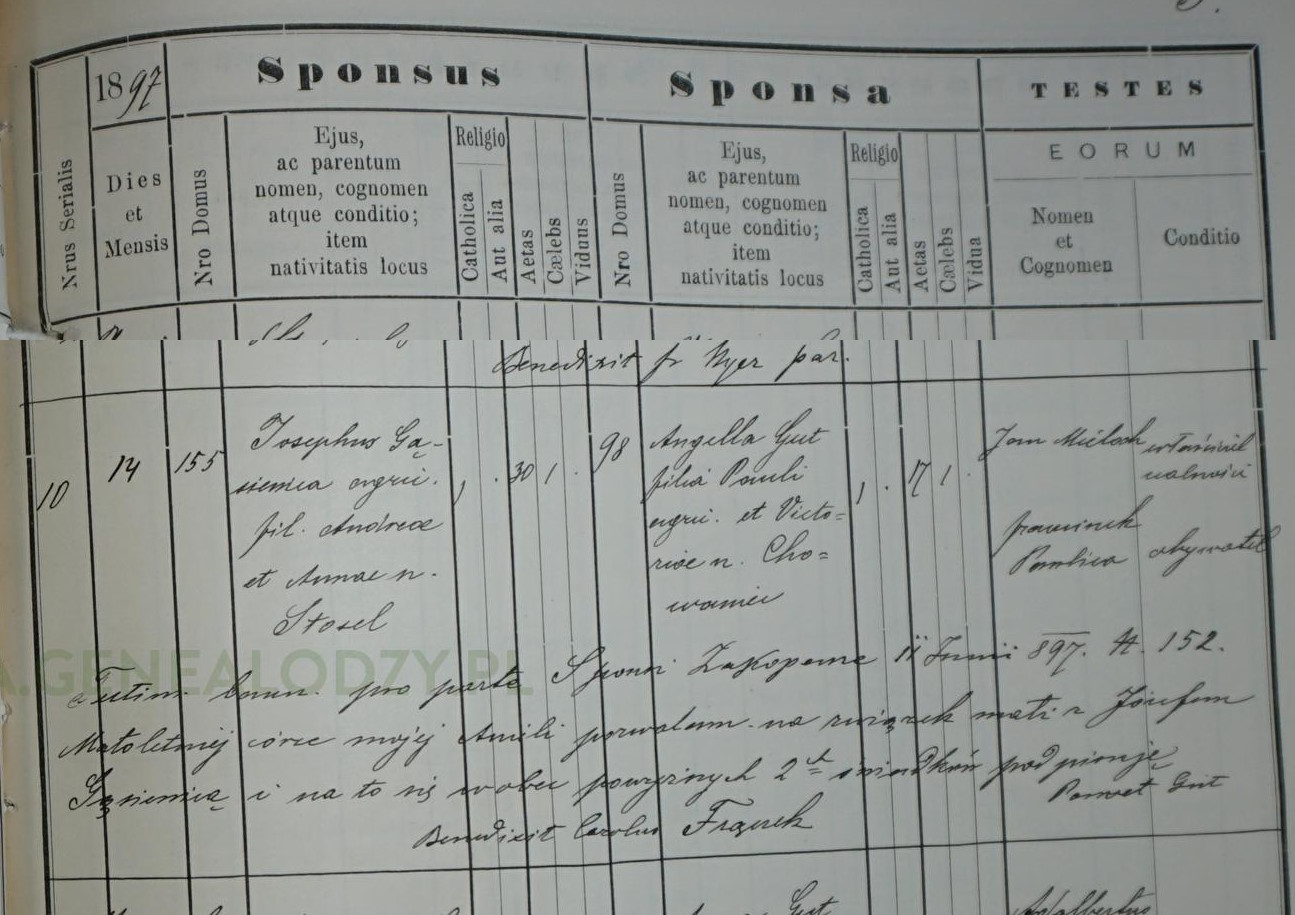 1897
Sponsus
Sponsa
TESTES
Nrus Serialis
Dies
et
Mensis
Nro Domus
Ejus,
ac parentum
nomen, cognomen
atque conditio;
item
nativitatis locus
Religio
Catholica
Aut alia
Aetas
Cælebs
Viduus
Nro Domus
Ejus,
ac parentum
nomen, cognomen
atque conditio;
item
nativitatis locus
Religio
Catholica
Aut alia
Aetas
Cælebs
Vidua
EORUM
Nomen
et
Cognomen
Conditio
Benedixit par.
10
14
155
Josephus Gą-
sienica agric.
fil. Andreae
et Annae n.
Stosel
30 1
98
Angella Gut
filia Pauli
agric. et Victo=
riae n. Cho=
waniec
17 1
Jan
właściciel
realności
obywatel
Testim. bann. pro parte Sponsi Zakopane 11 Junii 897. N. 152.
Małoletniej córce mojej Anieli pozwalam na związek małż z Józefem
Gąsienicą i na to się wobec powyższych 2ch świadków podpisuję
Paweł Gut
Benedixit Carolus Frączek
A.GENEALODZY.PL
Gut
Adalbertus